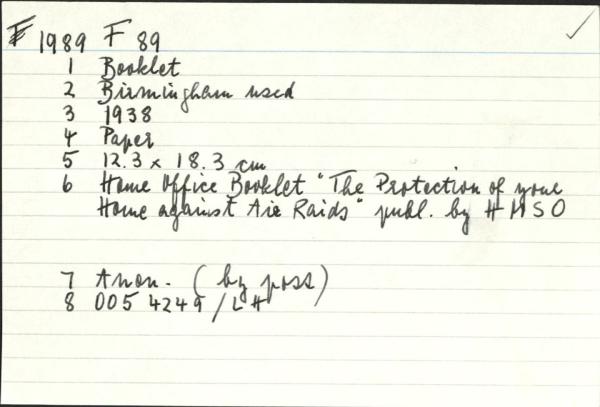 1989 F 89
1 Booklet
2 Birmingham used
3 1938
4 Paper
5 12.3 x 18.3 cm
6 Home Office Booklet "The Protection of your
Home against Air Raids" publ. by HMSO
7 Anon. (by post)
8 005 4249/LH